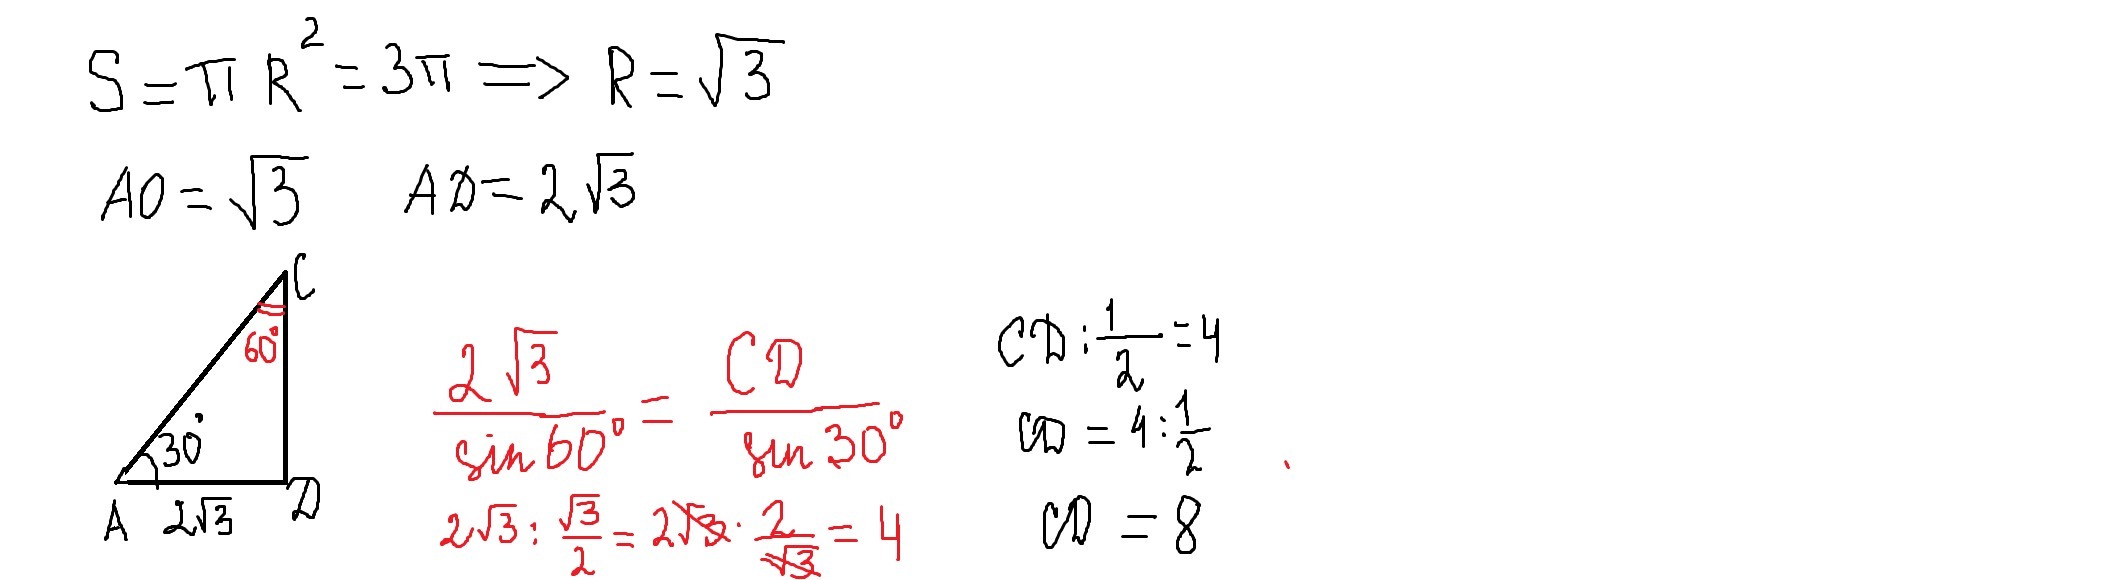 S = π R² = 3π ⟹ R = √3
AO = √3   AD = 2√3
C
60°
30°
A 2√3 D
2√3 / sin 60° = CD / sin 30°
2√3 : √3/2 = 2√3 · 2/√3 = 4
CD : 1/2 = 4
CD = 4 : 1/2
CD = 8